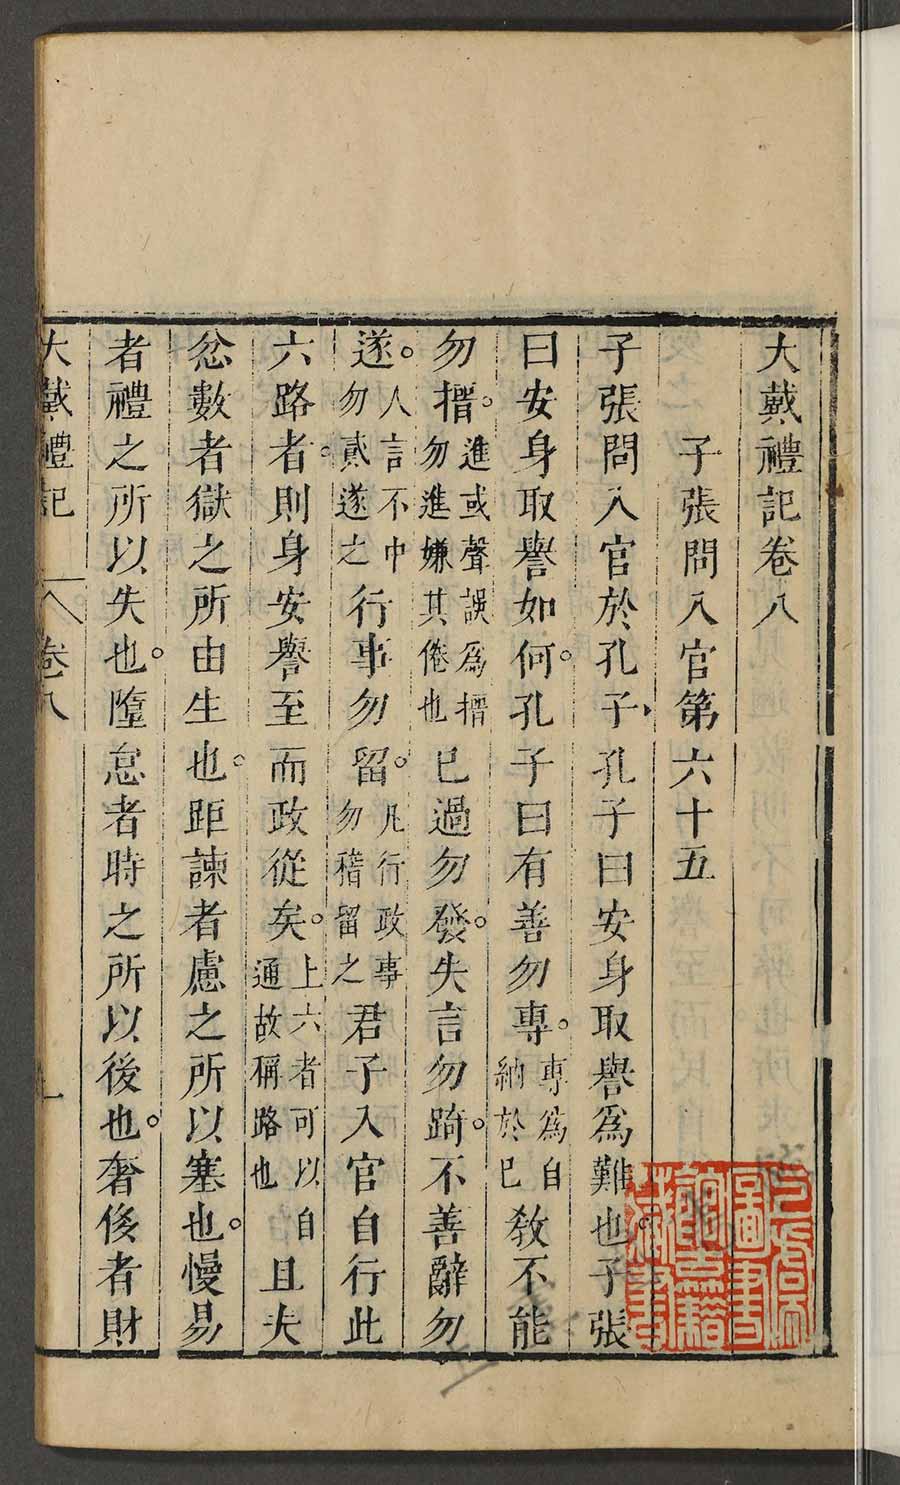 大戴禮記卷八
子張問入官第六十五
子張問入官於孔子孔子曰安身取譽爲難也子張
曰安身取譽如何。孔子曰有善勿專。專爲自納於已教不能
勿搢。進或聲誤爲搢勿進嫌其倦也已過勿發。失言勿踦。不善辭勿
遂。人言不中勿貳遂之行事勿留。凡行政事勿稽留之君子入官自行此
六路者。則身安譽至而政從矣。上六者可以自通故稱路也且夫
忿數者獄之所由生也。距諫者慮之所以塞也。慢易
者禮之所以失也。墮怠者時之所以後也。奢侈者財
大戴禮記 卷八 一